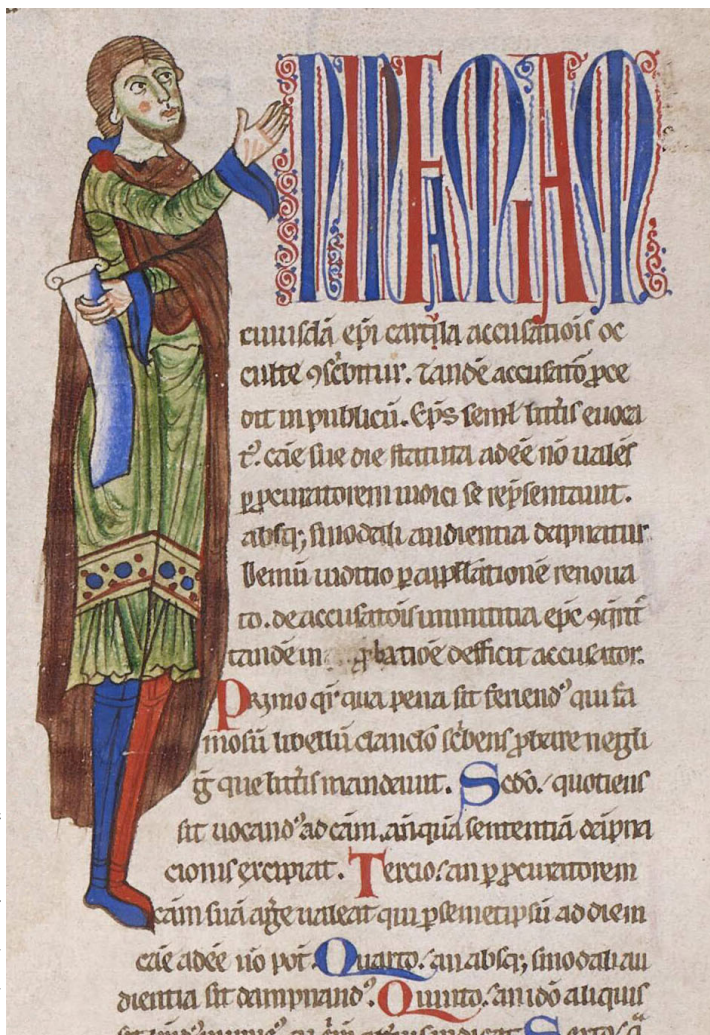 IN INFAMIAM
cuiusdā ep̄i cartula accusatiōis oc
culte ꝯsc̄bitur. tandē accusatōꝛ ꝓce
dit in publicū. Ep̄s semł litt̄is euoca
t᷒. cāe sue die statuta adeē nō ualēs
ꝑ ꝓcuratorem iudici se rep̄sentauit.
absq; sinodali audientia dāpnatur
demū iudicio ꝑ appellationē renoua
to. de accusatōis inimicitia ep̄c ꝯq̄rit᷒
tandē in ꝓbatiōe defficit accusator.
Primo qr̄ qua pena sit feriendꝰ qui fa
mosū libellū clanclō sc̄bens ꝓbare negli
ḡ que litt̄is mandauit. Scdō. quotiens
sit uocandꝰ ad cām. añ quā sententiā dāpna
cionis excipiat. Tercio. an ꝑ ꝓcuratorem
cām suā aḡe ualeat qui ꝑ semetipsū ad diem
cāe adeē nō pōt. Quarto. an absq; sinodali au
dientia sit dampnandꝰ. Quinto. an idō aliquis